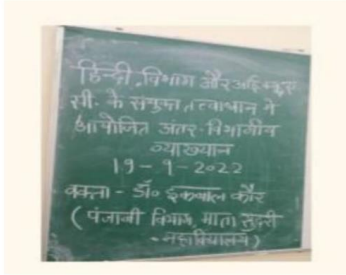 हिन्दी विभाग और आई.क्यू.ए.
सी. के संयुक्त तत्वाधान में
आयोजित अंतर-विभागीय
व्याख्यान
19-9-2022
वक्ता - डॉ० इकबाल कौर
(पंजाबी विभाग, माता सुंदरी
महाविद्यालय)